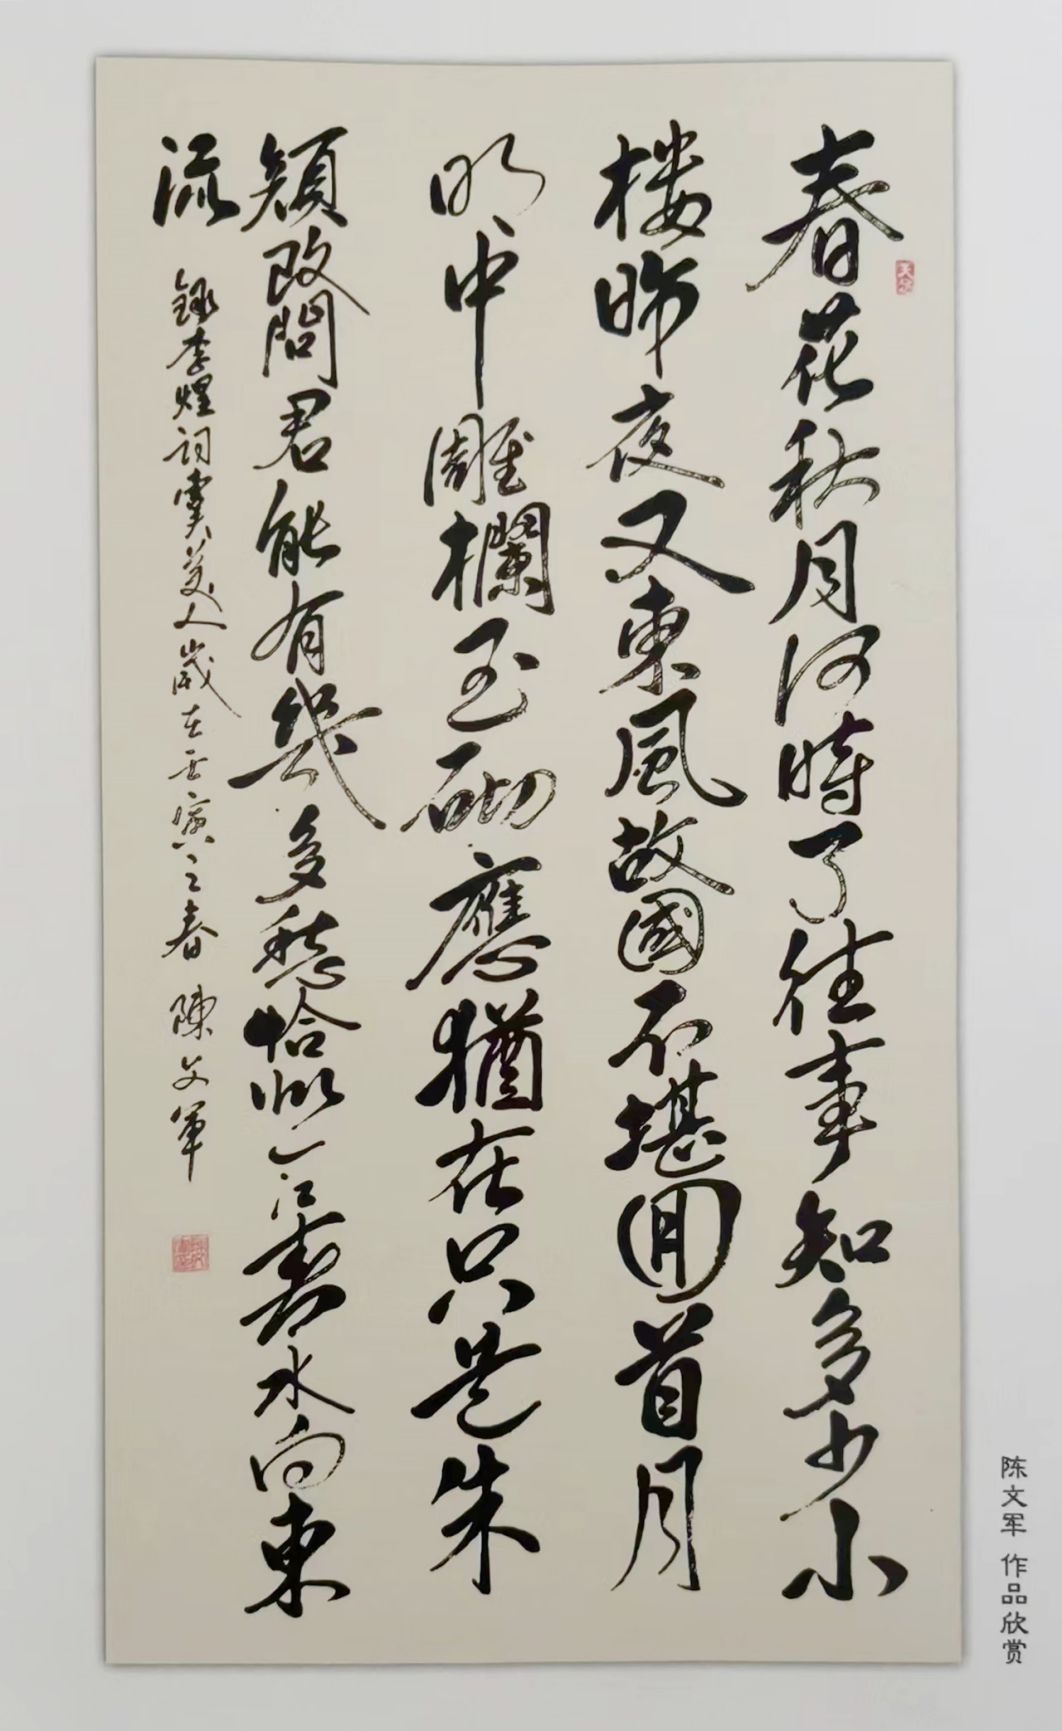 春花秋月何時了往事知多少小
楼昨夜又東風故國不堪回首月
明中雕欄玉砌應猶在只是朱
顏改問君能有幾多愁恰似一江春水向東
流
録李煜詞虞美人歲在壬寅之春 陳文軍
陈文军 作品欣赏